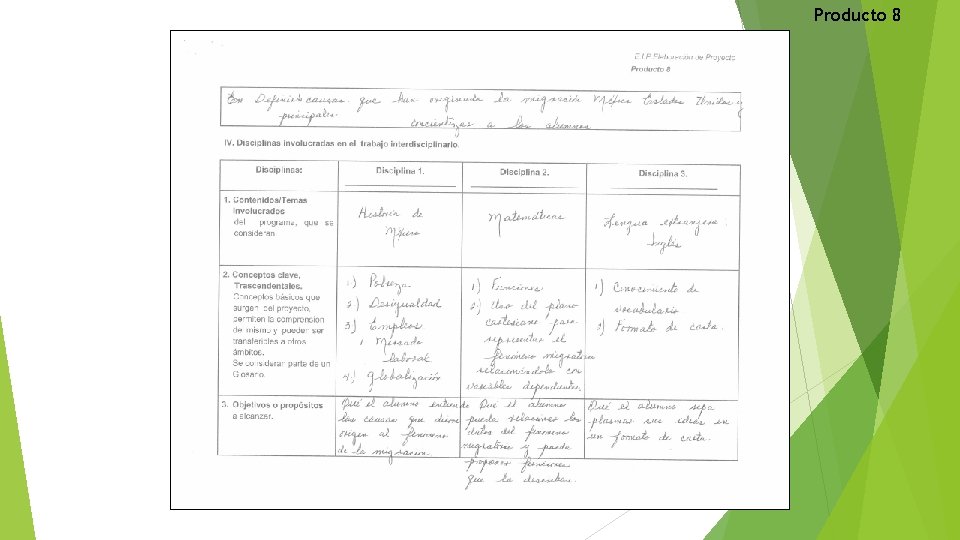 Producto 8
E.I.P. Elaboración de Proyecto
Producto 8
En Definir causas que han originado la migración México Estados Unidos y
principales.
concientizar a los alumnos
IV. Disciplinas involucradas en el trabajo interdisciplinario.
Disciplinas:
Disciplina 1.
Disciplina 2.
Disciplina 3.
1. Contenidos/Temas
Involucrados
del programa, que se
consideran.
Historia de
México
Matemáticas
Lengua extranjera.
Inglés
2. Conceptos clave,
Trascendentales.
Conceptos básicos que
surgen del proyecto,
permiten la comprensión
del mismo y pueden ser
transferibles a otros
ámbitos.
Se consideran parte de un
Glosario.
1) Pobreza
2) Desigualdad
3) Empleos
Mercado
laboral
4) globalización
1) Funciones
2) Uso del plano
cartesiano para
representar el
fenómeno migratorio
relacionándolo con
variables dependientes
1) Conocimiento de
vocabulario
2) Formato de carta.
3. Objetivos o propósitos
a alcanzar.
Qué el alumno entienda
las causas que dieron
origen al fenómeno
de la migración.
Qué el alumno
pueda relacionar los
datos del fenómeno
migratorio y pueda
proponer funciones
que la describan.
Qué el alumno sepa
plasmar sus ideas en
un formato de carta.